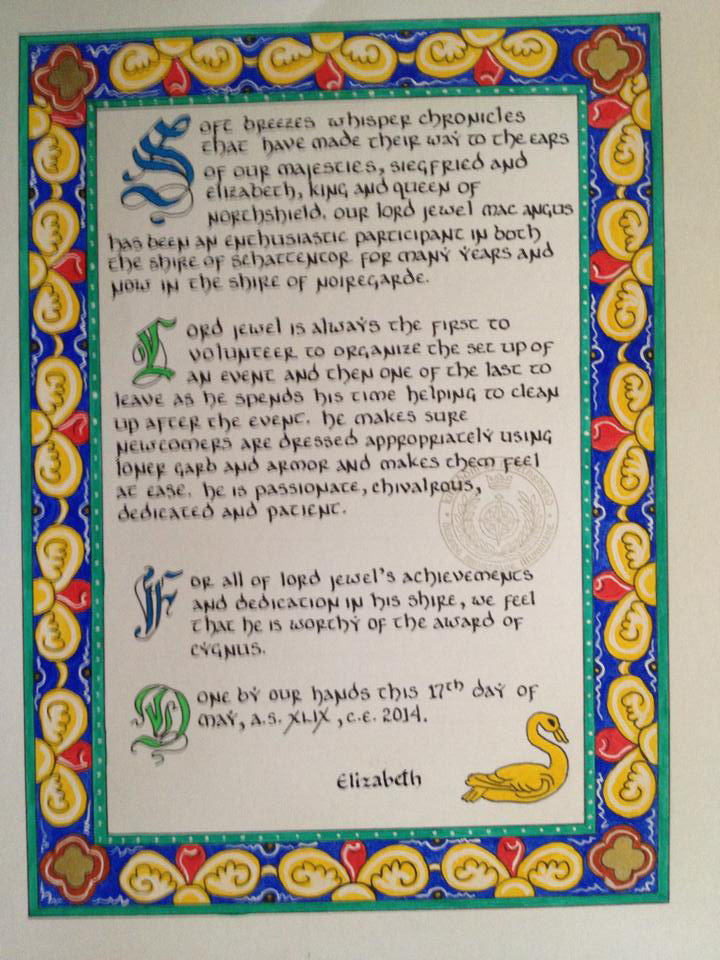 Soft breezes whisper chronicles
that have made their way to the ears
of our majesties, Siegfried and
Elizabeth, King and Queen of
Northshield. Our Lord Jewel Mac Angus
has been an enthusiastic participant in both
the Shire of Schattentor for many years and
now in the Shire of Noiregarde.
Lord Jewel is always the first to
volunteer to organize the set up of
an event and then one of the last to
leave as he spends his time helping to clean
up after the event. He makes sure
newcomers are dressed appropriately using
loner garb and armor and makes them feel
at ease. He is passionate, chivalrous,
dedicated and patient.
For all of Lord Jewel's achievements
and dedication in his shire, we feel
that he is worthy of the award of
Cygnus.
Done by our hands this 17th day of
May, a.s. XLIX, c.e. 2014.
Elizabeth